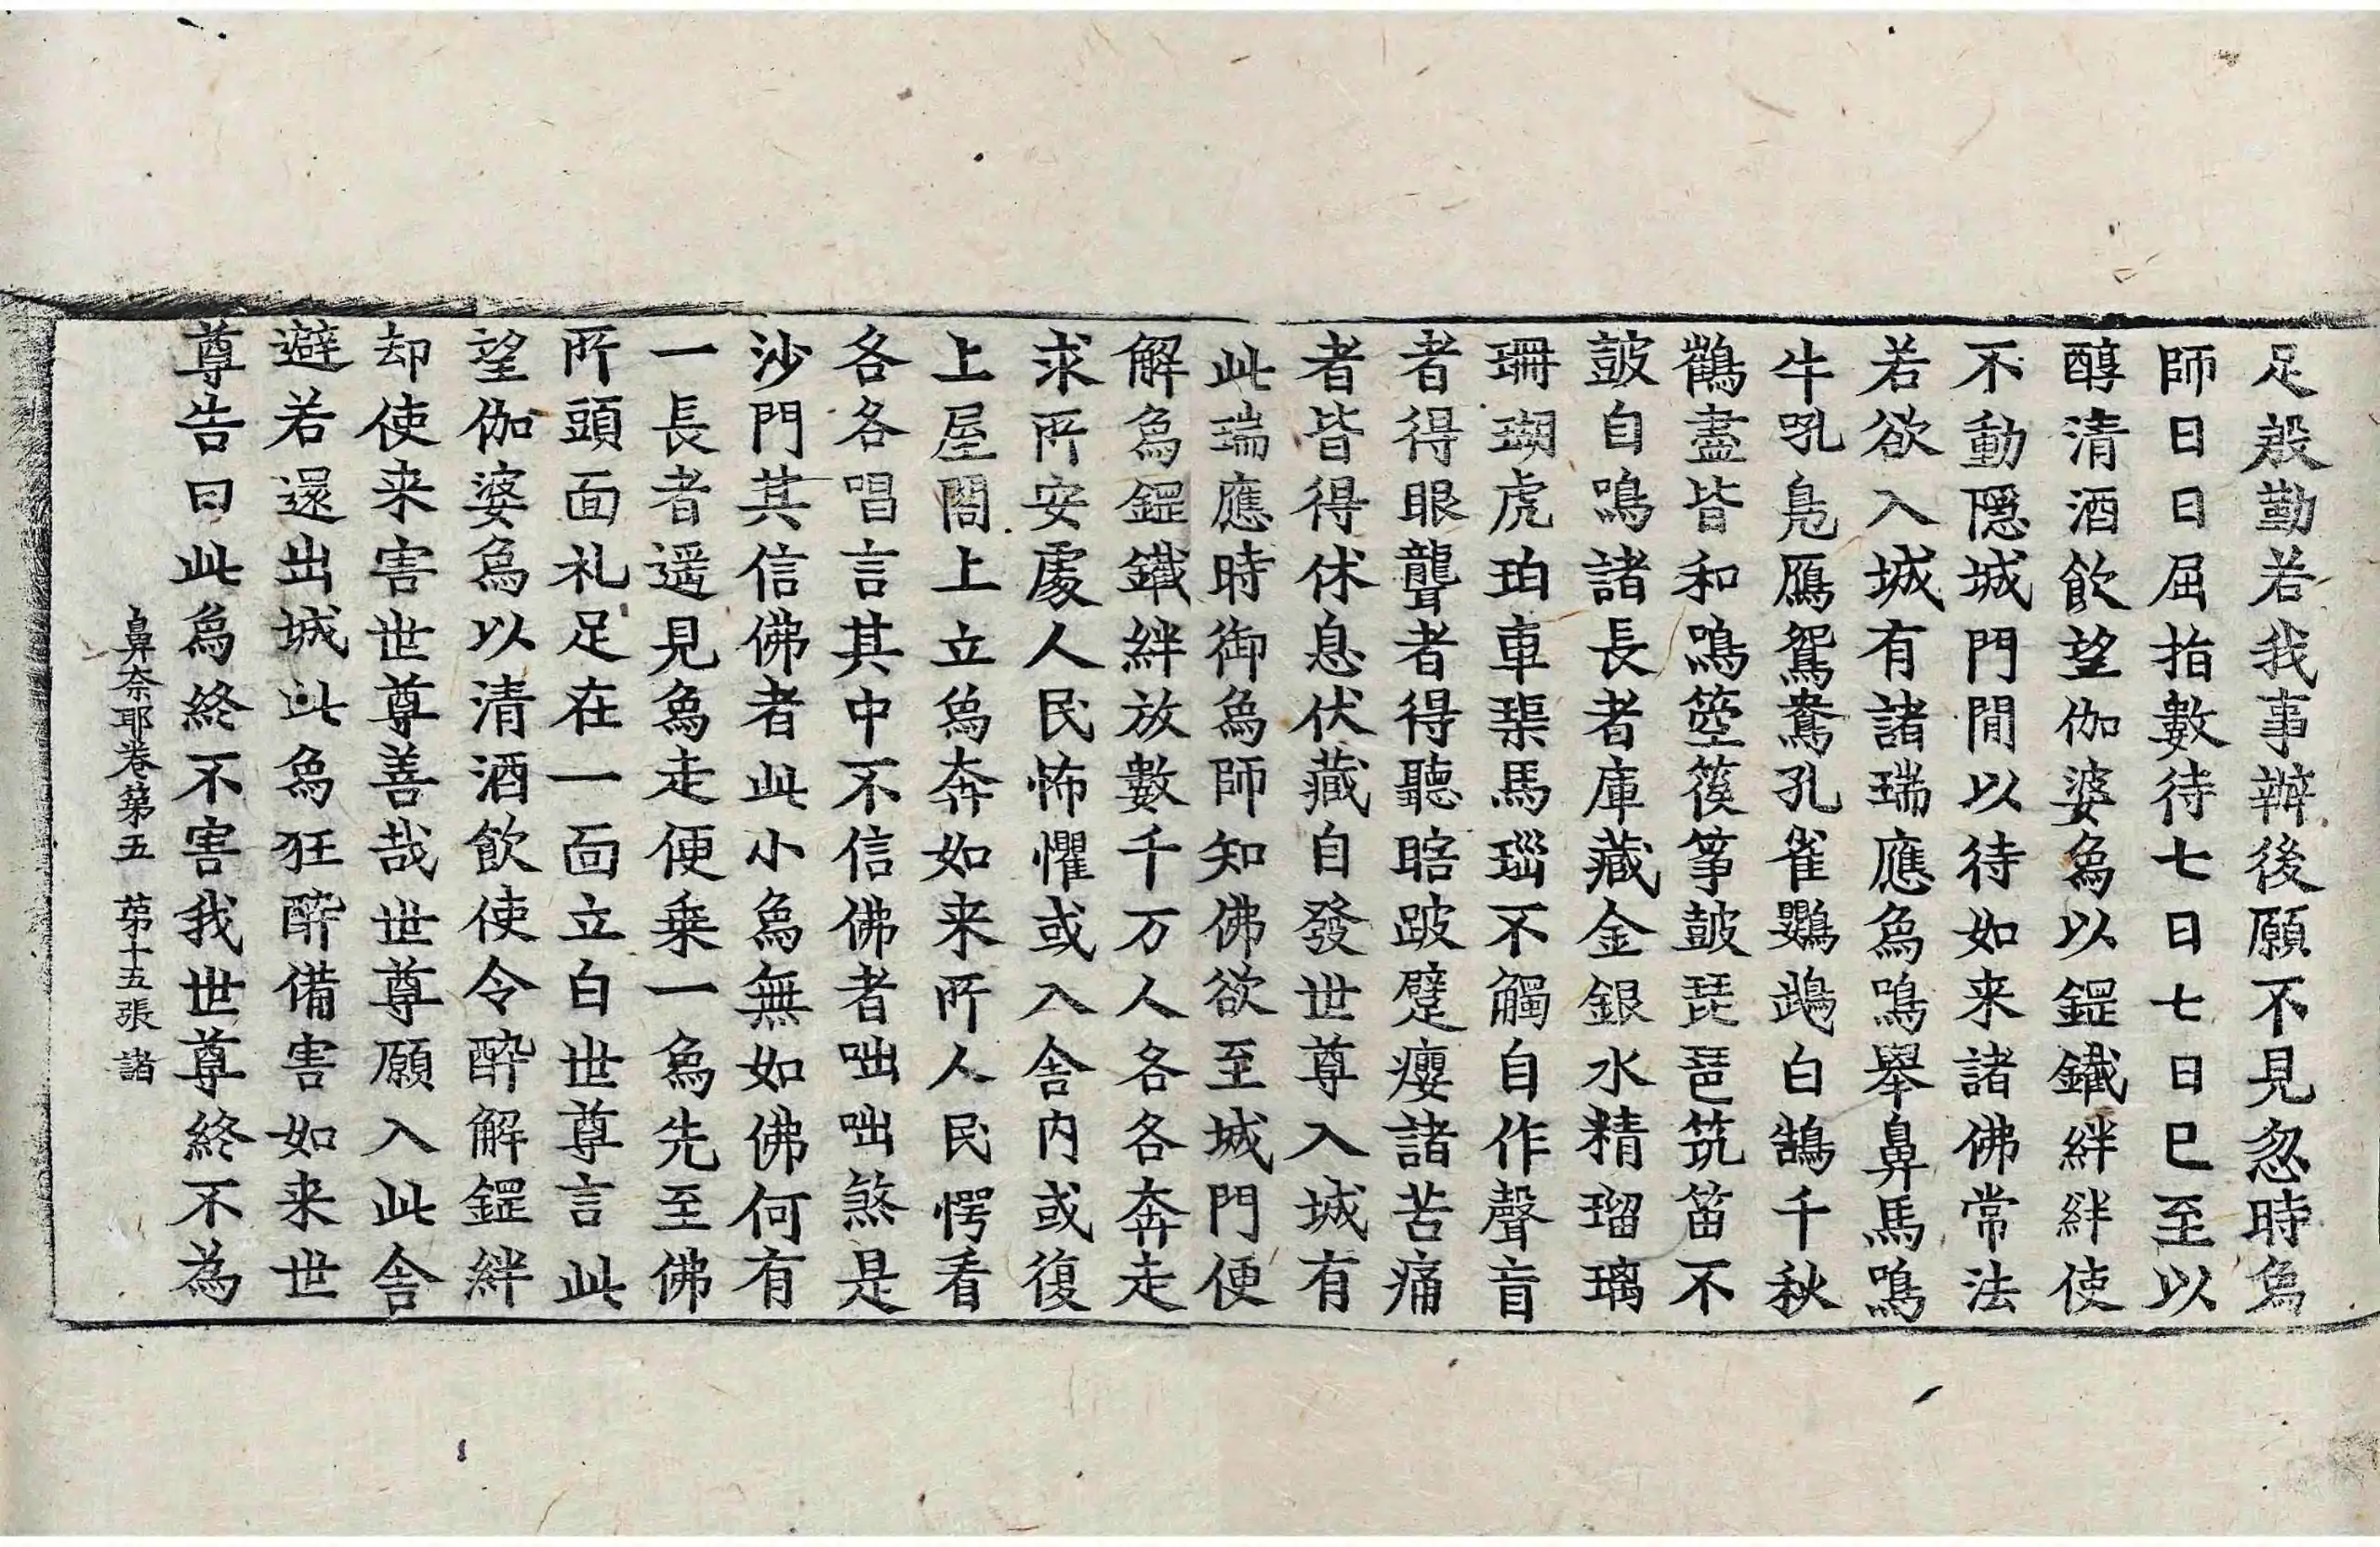 足慇勤若我事辦後願不見忽時象
師日日屈指數待七日七日已至以
醇清酒飲望伽婆象以鋜鐵絆絆使
不動隱城門閒以待如来諸佛常法
若欲入城有諸瑞應象鳴舉鼻馬鳴
牛吼鳬鴈鴛鴦孔雀鸚鵡白鵠千秋
鶴盡皆和鳴箜篌筝鼓琵琶筑笛不
鼓自鳴諸長者庫藏金銀水精瑠璃
珊瑚虎珀車𤦲馬瑙不觸自作聲盲
者得眼聾者得聽瞎跛躄癭諸苦痛
者皆得休息伏藏自發世尊入城有
此瑞應時御象師知佛欲至城門便
解象鋜鐵絆放數千万人各各奔走
求所安處人民怖懼或入舍内或復
上屋閣上立象奔如来所人民愕看
各各唱言其中不信佛者咄咄煞是
沙門其信佛者此小象無如佛何有
一長者遥見象走便乗一象先至佛
所頭面礼足在一面立白世尊言此
望伽婆象以清酒飲使令醉解鋜絆
却使来害世尊善哉世尊願入此舍
避若還出城此象狂醉備害如来世
尊告曰此象終不害我世尊終不為
鼻奈耶卷第五　第十五張　諸